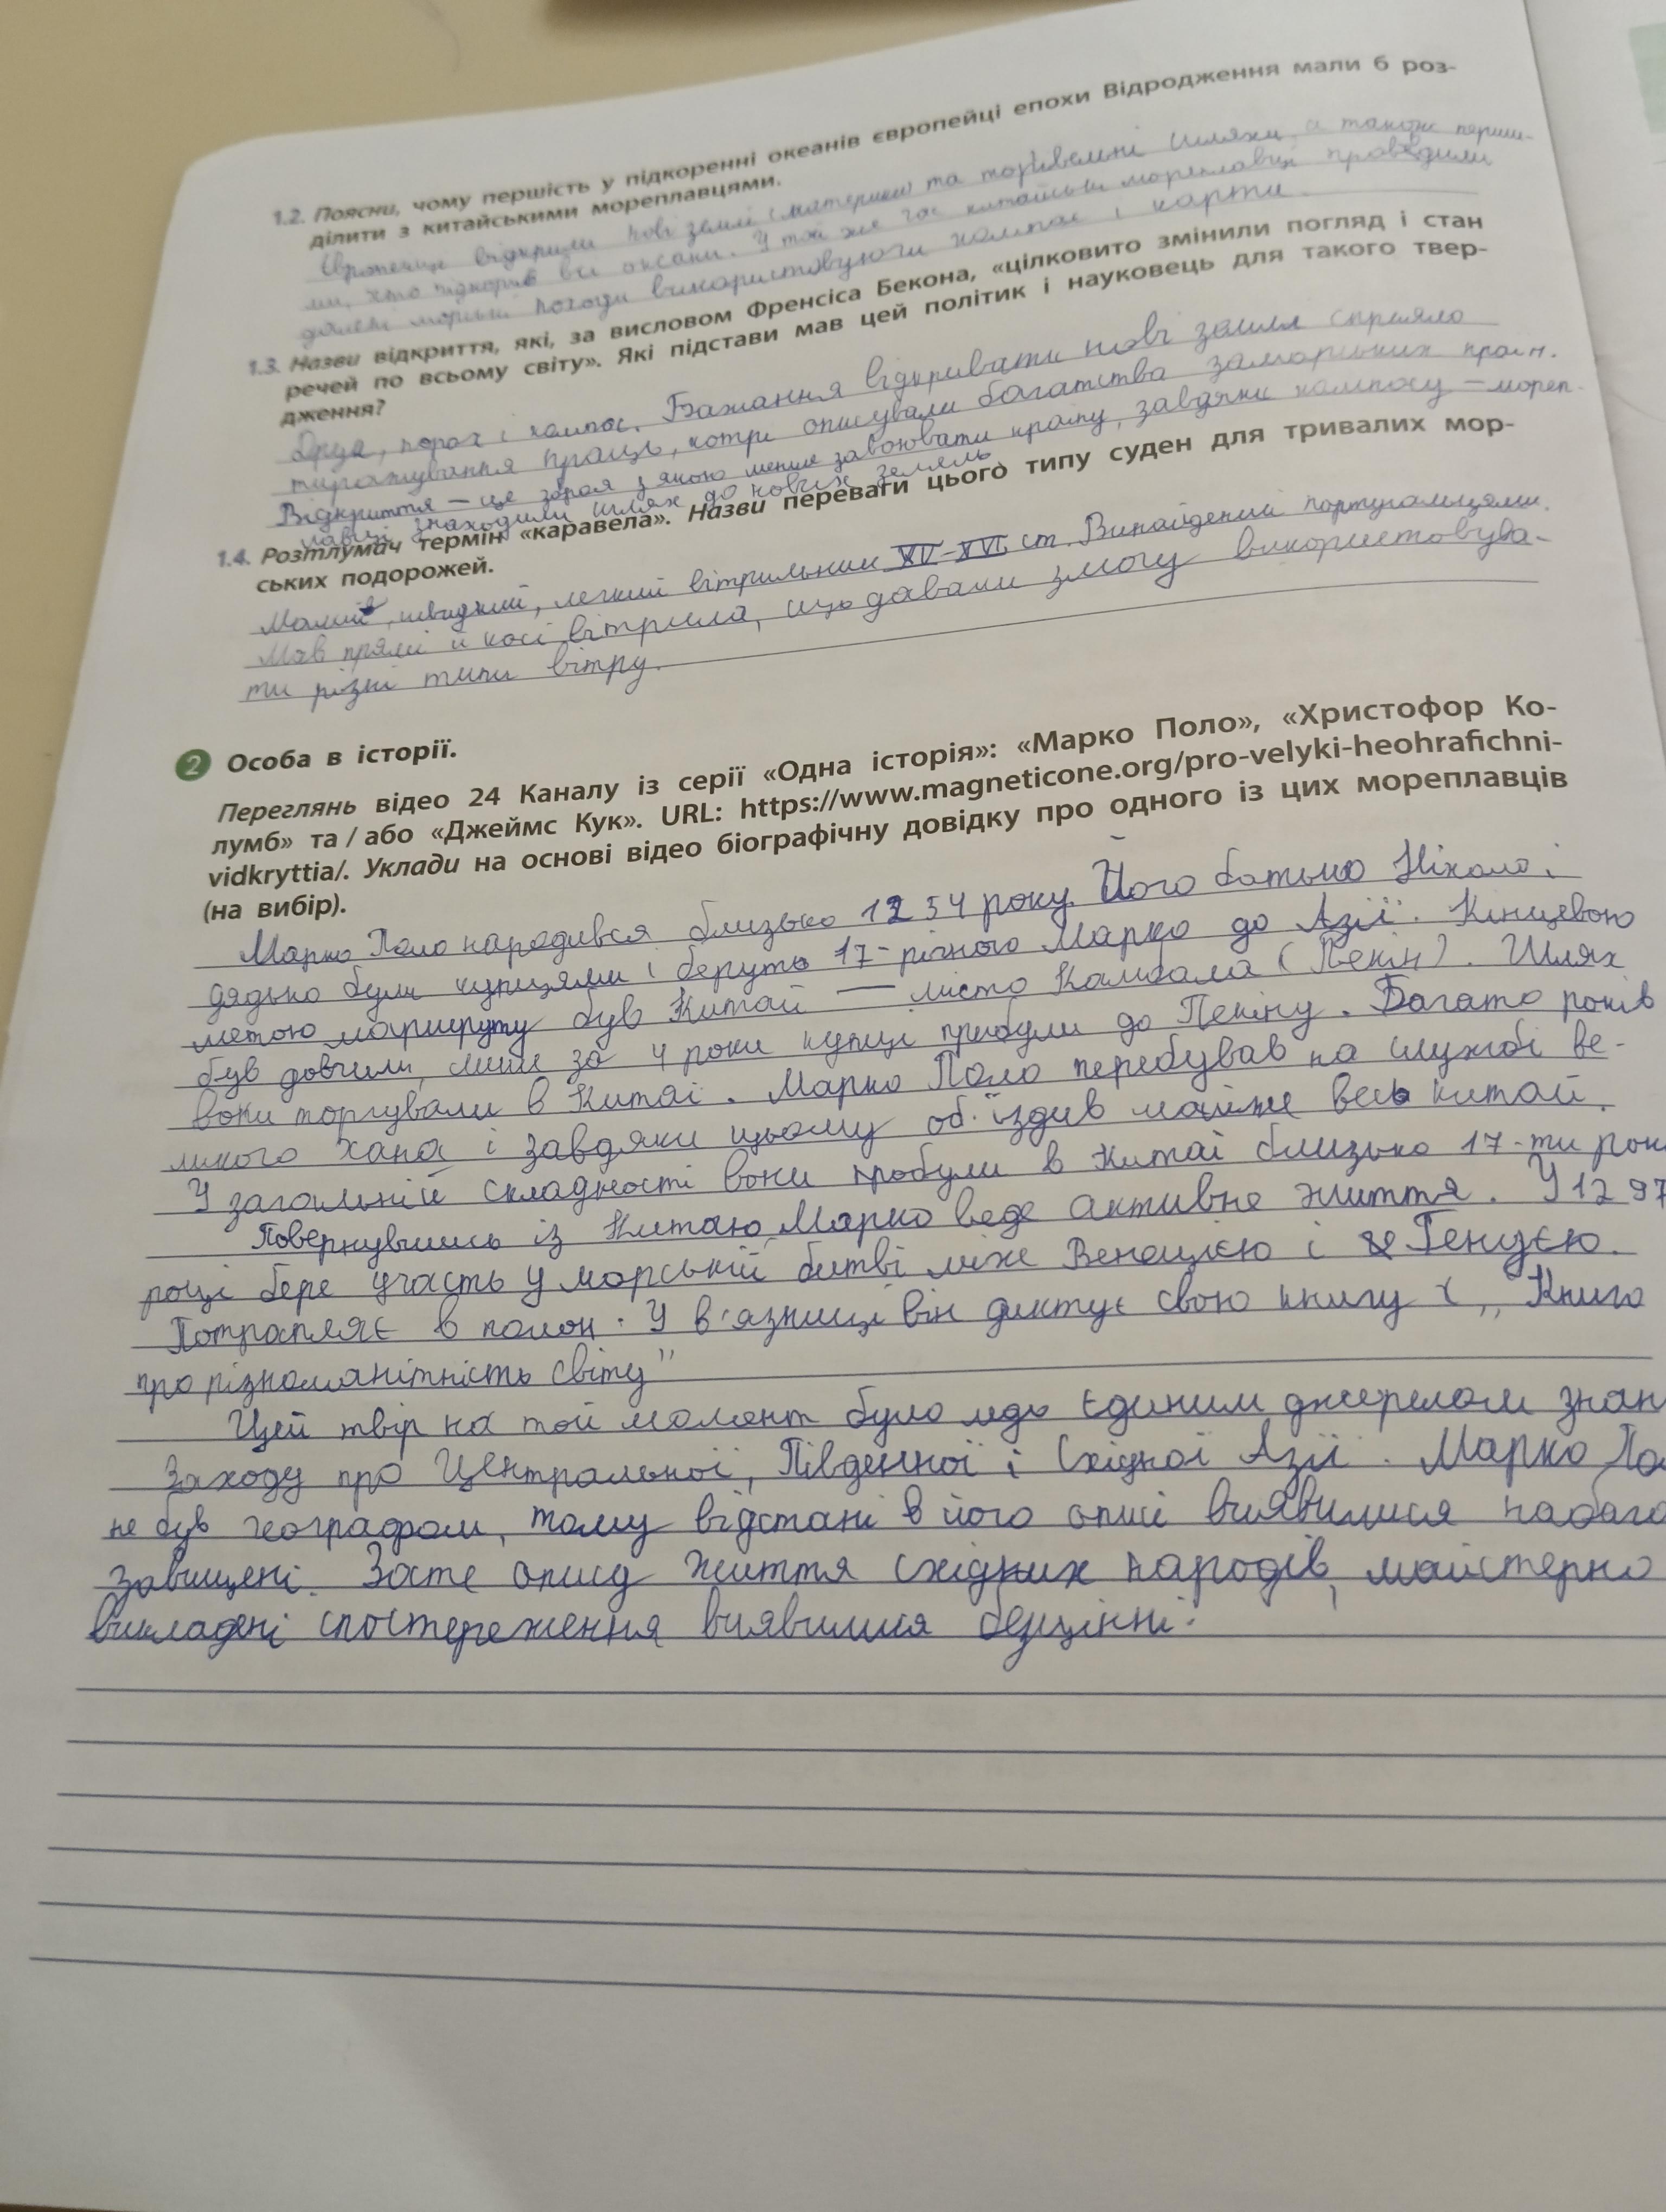 1.2. Поясни, чому першість у підкоренні океанів європейці епохи Відродження мали б роз-
ділити з китайськими мореплавцями.
Європейці відкрили нові землі (материки) та торгівельні шляхи, а також перши-
ми, хто підкорив всі океани. У той же час китайські мореплавці проводили
далекі морські походи використовуючи компас і карти.
1.3. Назви відкриття, які, за висловом Френсіса Бекона, «цілковито змінили погляд і стан
речей по всьому світу». Які підстави мав цей політик і науковець для такого твер-
дження?
Друк, порох і компас. Бажання відкривати нові землі сприяло
тиражування праць, котрі описували багатства заморських країн.
Відкриття — це зброя з якою менше завоювати країну, завдяки компасу — мореп-
лавці знаходили шлях до нових земель
1.4. Розтлумач термін «каравела». Назви переваги цього типу суден для тривалих мор-
ських подорожей.
Малий, швидкий, легкий вітрильник XV-XVI ст. Винайдений португальцями.
Мав прямі й косі вітрила, що давали змогу використовува-
ти різні типи вітру.
2 Особа в історії.
Переглянь відео 24 Каналу із серії «Одна історія»: «Марко Поло», «Христофор Ко-
лумб» та / або «Джеймс Кук». URL: https://www.magneticone.org/pro-velyki-heohrafichni-
vidkryttia/. Уклади на основі відео біографічну довідку про одного із цих мореплавців
(на вибір).
Марко Поло народився близько 1254 року. Його батько Ніколо і
дядько були купцями і беруть 17-річного Марко до Азії. Кінцевою
метою маршруту був Китай — місто Камбала (Пекін). Шлях
був довгим, лише за 4 роки купці прибули до Пекіну. Багато років
вони торгували в Китаї. Марко Поло перебував на службі ве-
ликого хана і завдяки цьому об'їздив майже весь китай.
У загальній складності вони пробули в Китаї близько 17-ти рок
Повернувшись із Китаю, Марко веде активне життя. У 1297
році бере участь у морській битві між Венецією і Генуєю.
Потрапляє в полон. У в'язниці він диктує свою книгу „Книга
про різноманітність світу"
Цей твір на той момент було ледь єдиним джерелом знан
Заходу про Центральної, Південної і Східної Азії. Марко По
не був географом, тому відстані в його описі виявилися набага
завищені. Зате опису життя східних народів, майстерно
викладені спостереження виявилися безцінні.